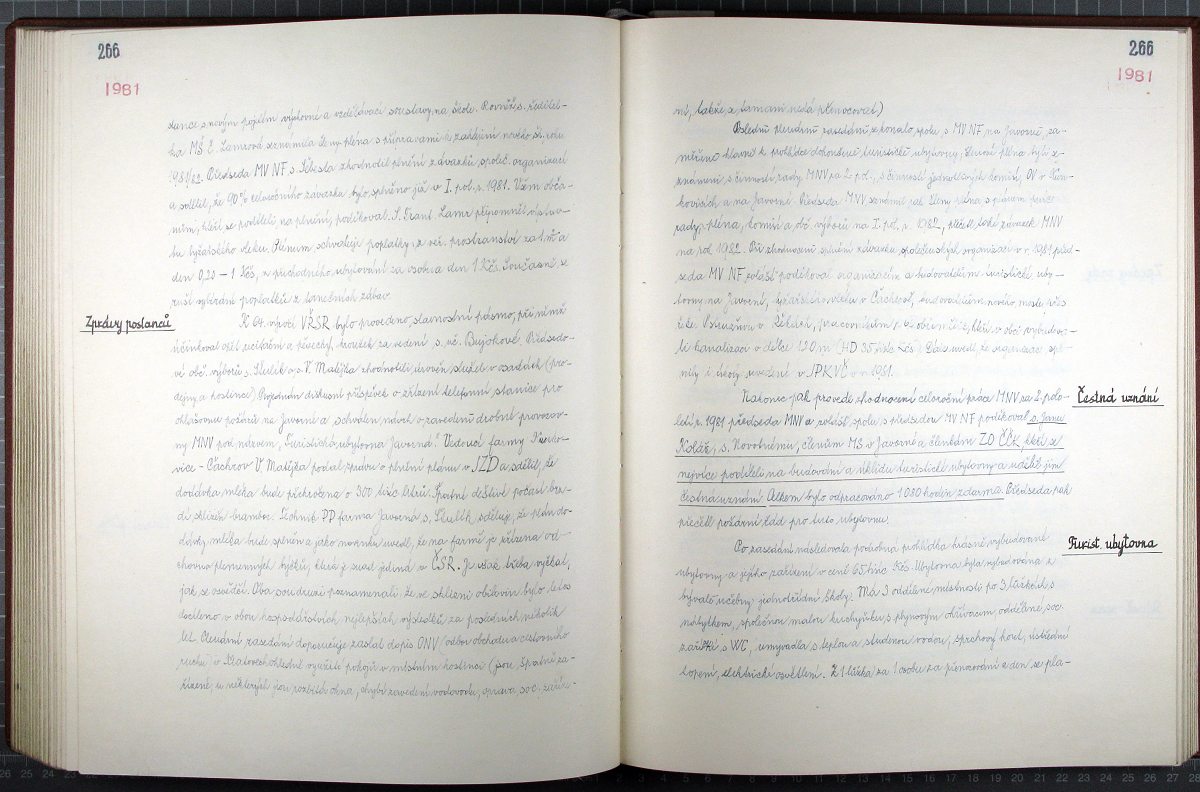 266
1981
tance s novým pojetím výchovné a vzdělávací soustavy na škole. Rovněž s. ředitel-
ka MŠ Č. Lamrová seznámila členy pléna s přípravami k zahájení nového šk. roku
1981/82. Předseda MV NF s. Sekada zhodnotil plnění závazků společ. organizací
a sdělil, že 90% celoročního závazku bylo splněno již v I. pol. r. 1981. Všem obča-
nům, kteří se podíleli na plnění, poděkoval. S. Frant. Lamr připomněl výstav-
bu lyžařského vleku. Plénum schvaluje poplatky z veř. prostranství za 1 m² a
den 0,20 – 1 Kčs, z přechodného ubytování za osobu a den 1 Kčs. Současně se
ruší vybírání poplatků z tanečních zábav.
Zprávy poslanců
K 64. výročí VŘSR bylo provedeno slavnostní pásmo, při němž
účinkoval opět recitační a pěvecký kroužek za vedení s. uč. Bujokové. Předsedo-
vé obč. výborů s. Stulík a s. V. Matějka zhodnotili úroveň služeb v osadách (pro-
dejny a hostince). Projednán diskusní příspěvek o zřízení telefonní stanice pro
ohlašovnu požárů na Javorné a schválen návrh o zavedení drobné provozov-
ny MNV pod názvem „Turistická ubytovna Javorná". Vedoucí farmy
vice - Čachrov V. Matějka podal zprávu o plnění plánu v JZD a sdělil, že
dodávka mléka bude překročena o 300 tisíc litrů. Špatné deštivé počasí brz-
dí sklizeň brambor. Technik PP farma Javorná s. Stulík sděluje, že plán do-
dávky mléka bude splněn a jako novinku uvedl, že na farmě je zřízena od-
chovna plemenných býčků, která je snad jediná v ČSR. Je však třeba vyčkat,
jak se osvědčí. Oba soudruzi poznamenali, že ve sklizni obilovin bylo letos
docíleno v obou hospodářstvích nejlepších výsledků za posledních několik
let. Plenární zasedání doporučuje zaslat dopis ONV (odbor obchodu a cestovního
ruchu) v Klatovech ohledně využití pokojů v místním hostinci (jsou špatně za-
řízené, u některých jsou rozbitá okna, chybí zavedení vodovodu, oprava soc. zaříze-
266
1981
ní, takže se tam ani nedá přenocovat.)
Poslední plenární zasedání se konalo, spolu s MV NF na Javorné, za-
měřeno hlavně k prohlídce dokončené turistické ubytovny. Členové pléna byli se-
známeni s činností rady MNV za 2. pol., s činností jednotlivých komisí, OV v
kovicích a na Javorné. Předseda MNV seznámil pak členy pléna s plánem práce
rady, pléna, komisí a obč. výborů na I. pol. r. 1982, přečetl také závazek MNV
na rok 1982. Při zhodnocení splnění závazku společenských organizací v r. 1981 před-
seda MV NF zvlášť poděkoval organizacím a budovatelům turistické uby-
tovny na Javorné, lyžařského vleku v Čachrově, budovatelům nového mostu přes
říčku Ostružnou v, pracovníkům, kteří v obci vybudova-
li kanalizaci v délce 120 m (HD 35 tisíc Kčs). Dále uvedl, že organizace spl-
nily i úkoly uvedené v JPKVČ v r. 1981.
Čestná uznání
Nakonec pak provedl zhodnocení celoroční práce MNV za 2. polo-
letí r. 1981 předseda MNV a zvlášť, spolu s předsedou MV NF poděkoval s. Janu
Koláž, s. Novotnému, členům MS v Javorné a členkám ZO ČČK, kteří se
nejvíce podíleli na budování a úklidu turistické ubytovny a udělil jim
čestná uznání. Celkem bylo odpracováno 1 080 hodin zdarma. Předseda pak
přečetl požární řád pro tuto ubytovnu.
Turist. ubytovna
Po zasedání následovala podrobná prohlídka krásně vybudované
ubytovny a jejího zařízení v ceně 65 tisíc Kčs. Ubytovna byla vybudována z
bývalé učebny jednotřídní školy. Má 3 oddělené místnosti po 3 lůžkách s
nábytkem, společnou malou kuchyňku s plynovým ohřívačem, oddělené soc.
zařízení s WC, umyvadla s teplou a studenou vodou, sprchový kout, ústřední
topení, elektrické osvětlení. Z 1 lůžka za 1 osobu za přenocování a den se pla-